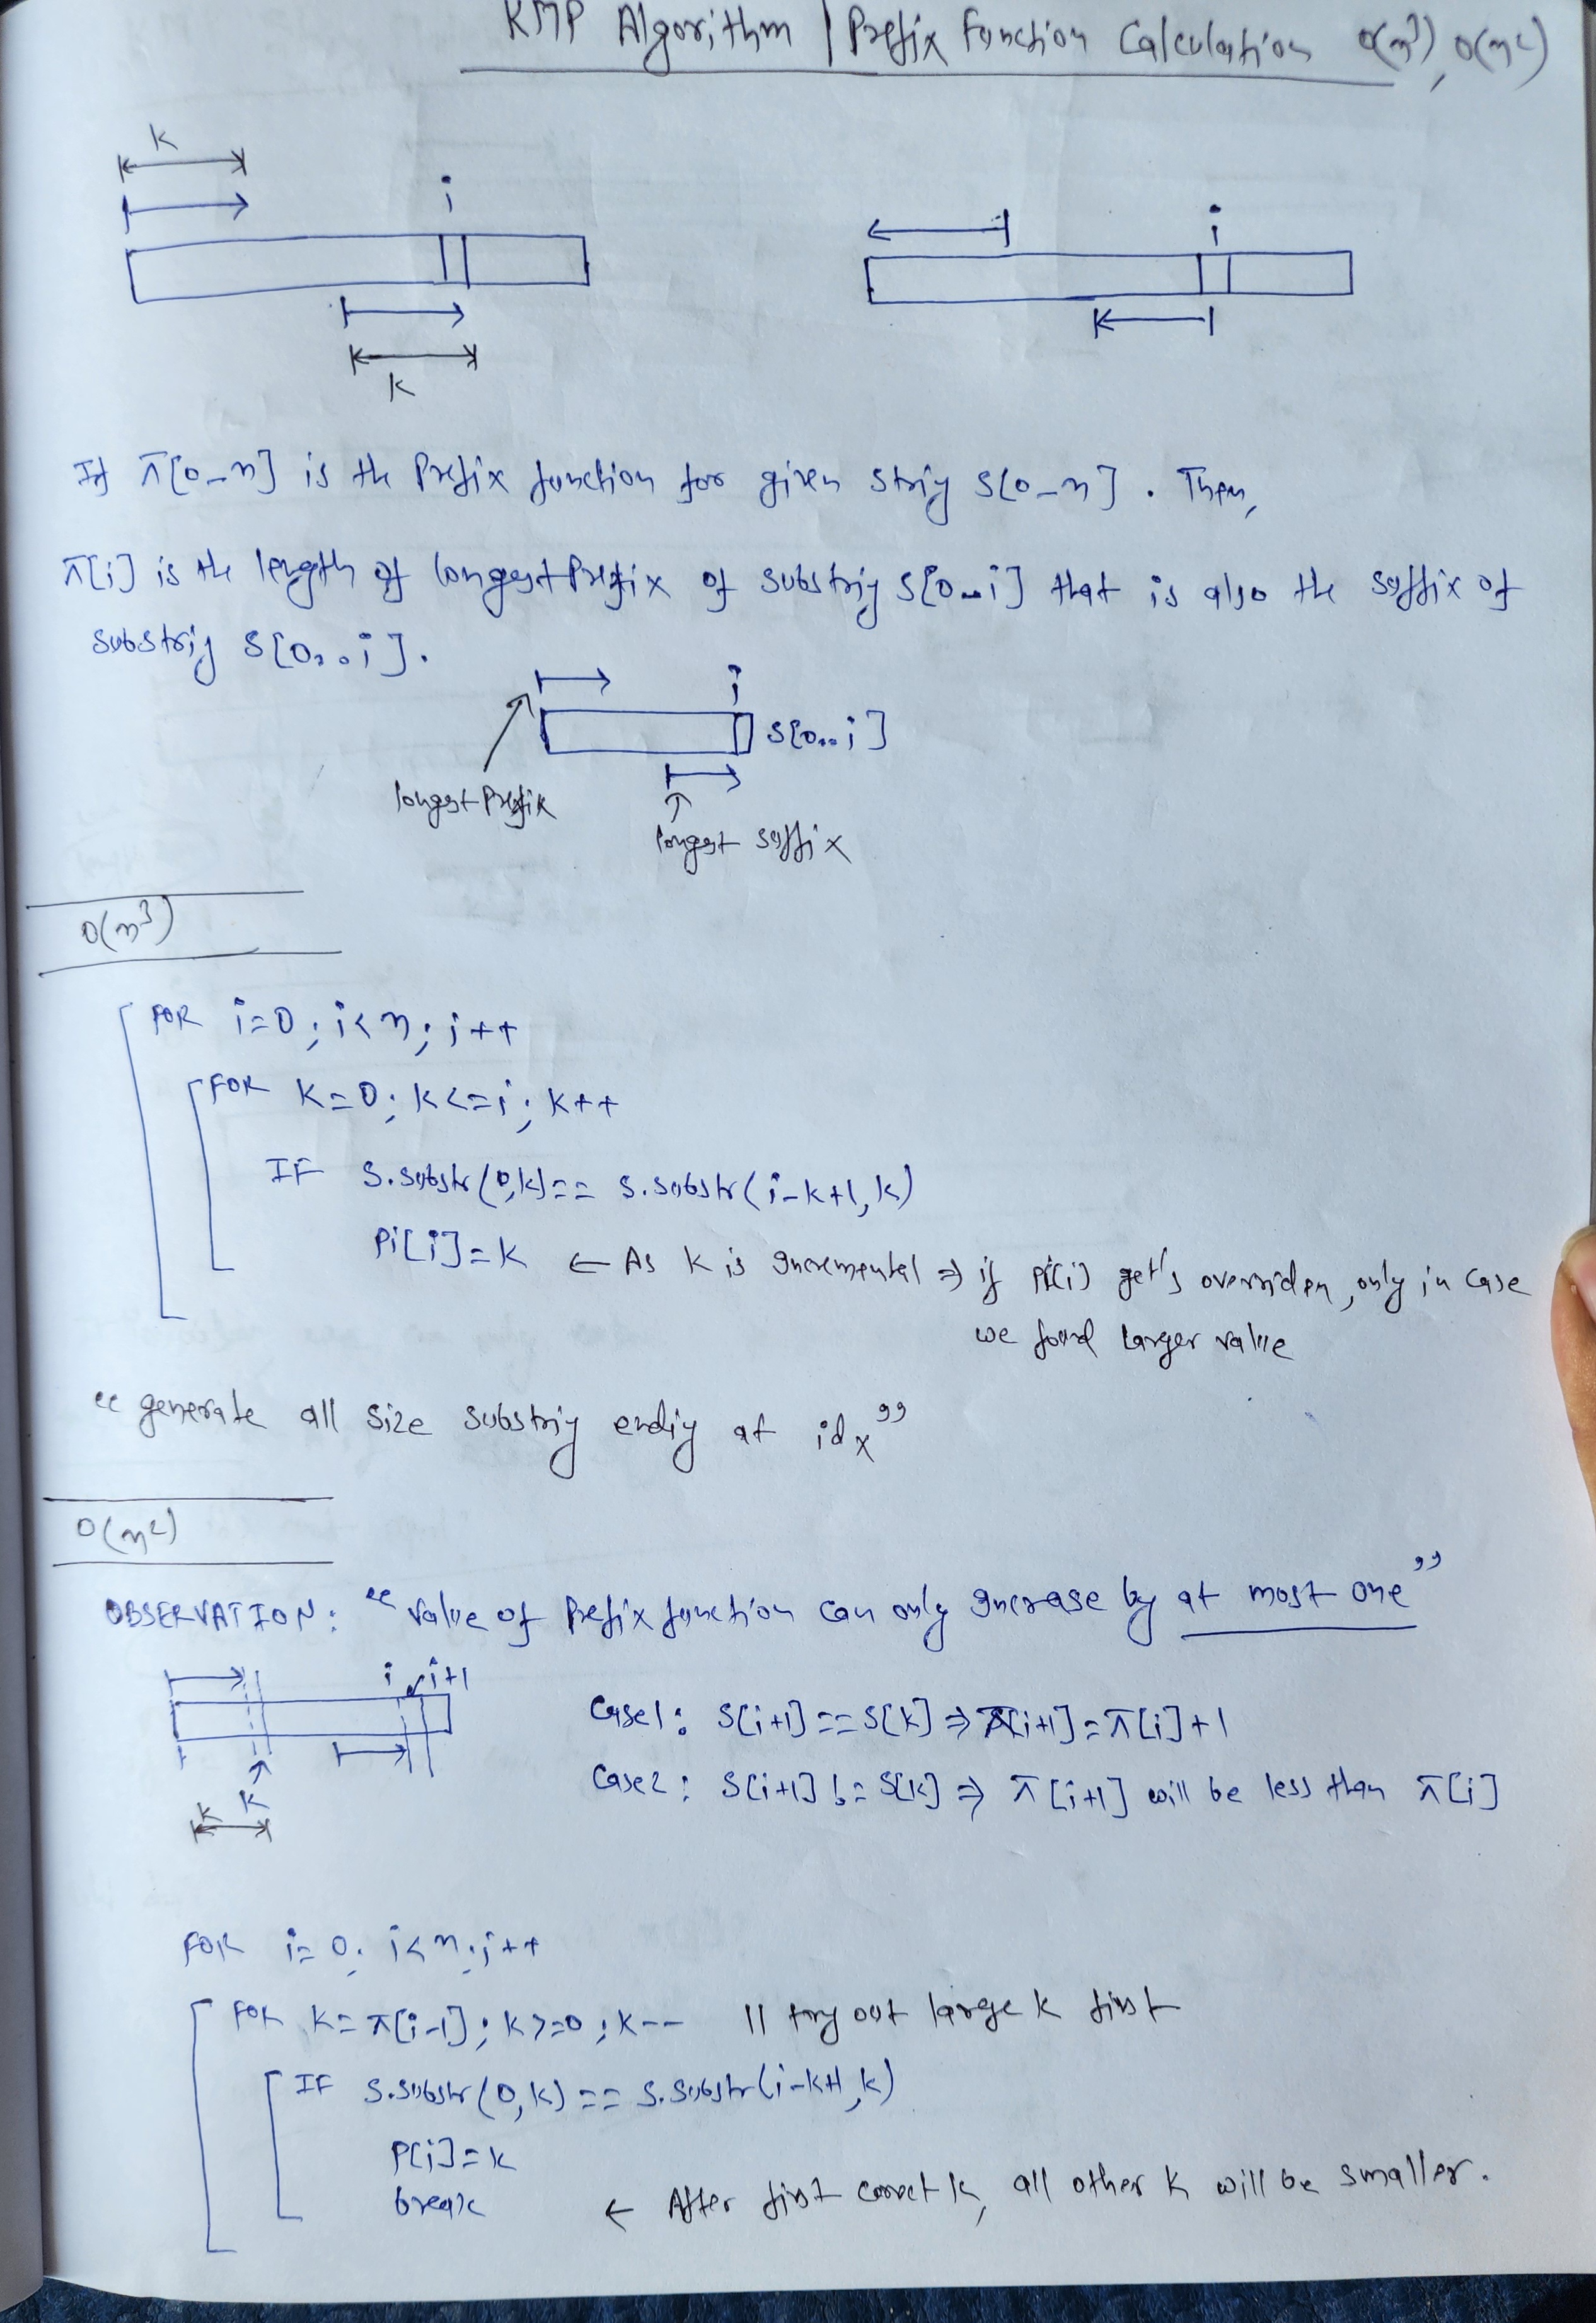 KMP Algorithm | Prefix Function Calculation O(n³), O(n²)
k
i
i
k
If π[0_n] is the Prefix function for given string S[0_n]. Then,
π[i] is the length of longest Prefix of substring S[0..i] that is also the suffix of
substring S[0..i].
i
S[0..i]
longest Prefix
longest suffix
O(n³)
FOR i=0; i<n; i++
FOR K=0; K<=i; K++
IF S.substr(0,k)== S.substr(i-k+1,k)
Pi[i]=k ← As k is incremental ⇒ if Pi[i] get's overriden, only in case
we found larger value
"generate all size substring ending at idx"
O(n²)
OBSERVATION: "value of Prefix function can only increase by at most one"
i i+1
Case1: S[i+1]==S[k] ⇒ π[i+1]=π[i]+1
k
Case2: S[i+1]!=S[k] ⇒ π[i+1] will be less than π[i]
k
FOR i=0; i<n; i++
FOR k=π[i-1]; k>=0; k-- // try out large k first
IF S.substr(0,k) == S.substr(i-k+1,k)
P[i]=k
break ← After first correct k, all other k will be smaller.